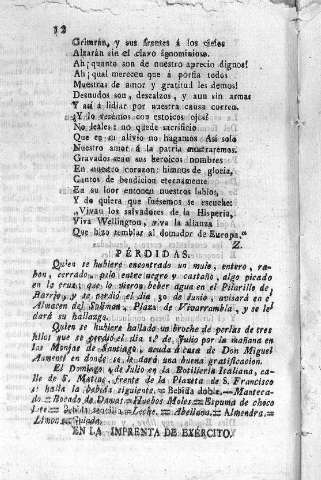 12
Gemirán, y sus frentes á los cielos
Alzarán sin el clavo ignominioso.
Ah; quanto son de nuestro aprecio dignos!
Ah; qual merecen que á porfia todos
Muestras de amor y gratitud les demos!
Desnudos son, descalzos, y aun sin armas
Y así á lidiar por nuestra causa corren.
¿Y lo veremos con estoicos ojos?
No leales: no quede sacrificio
Que en su alivio no hagamos. Así solo
Nuestro amor á la patria mostraremos.
Gravados sean sus heroicos nombres
En nuestro corazon: himnos de gloria,
Cantos de bendicion eternamente
En su loor entonen nuestros labios,
Y do quiera que fuésemos se escuche:
„Vivan los salvadores de la Hisperia,
Viva Wellington, viva la alianza
Que hizo temblar al domador de Europa."
Z.
PÉRDIDAS.
Quien se hubiere encontrado un mulo, entero, rabon,
cerrado, pelo entre negro y castaño, algo picado
en la cruz; que lo vieron beber agua en el Pilarillo de
Barrio, y se perdió el dia 30 de Junio, avisará en el
Almacen del Salitron, Plaza de Vivarrambla, y se le
dará su hallazgo.
Quien se hubiere hallado un broche de perlas de tres
hilos que se perdió el dia 1.º de Julio por la mañana en
las Monjas de Santiago, acuda á casa de Don Miguel
Aumentl en donde se le dará una buena gratificacion.
El Domingo 4 de Julio en la Botilleria Italiana, calle
de S. Matias, frente de la Plazeta de S. Francisco
se halla la bebida siguiente. = Bebida doble. = Mantecado
= Bocado de Damas = Huebos Moles. = Espuma de chocolate
= Bebida sencilla. = Leche. = Abellana. = Almendra. =
Limon = Guinda.
EN LA IMPRENTA DE EXÉRCITO.